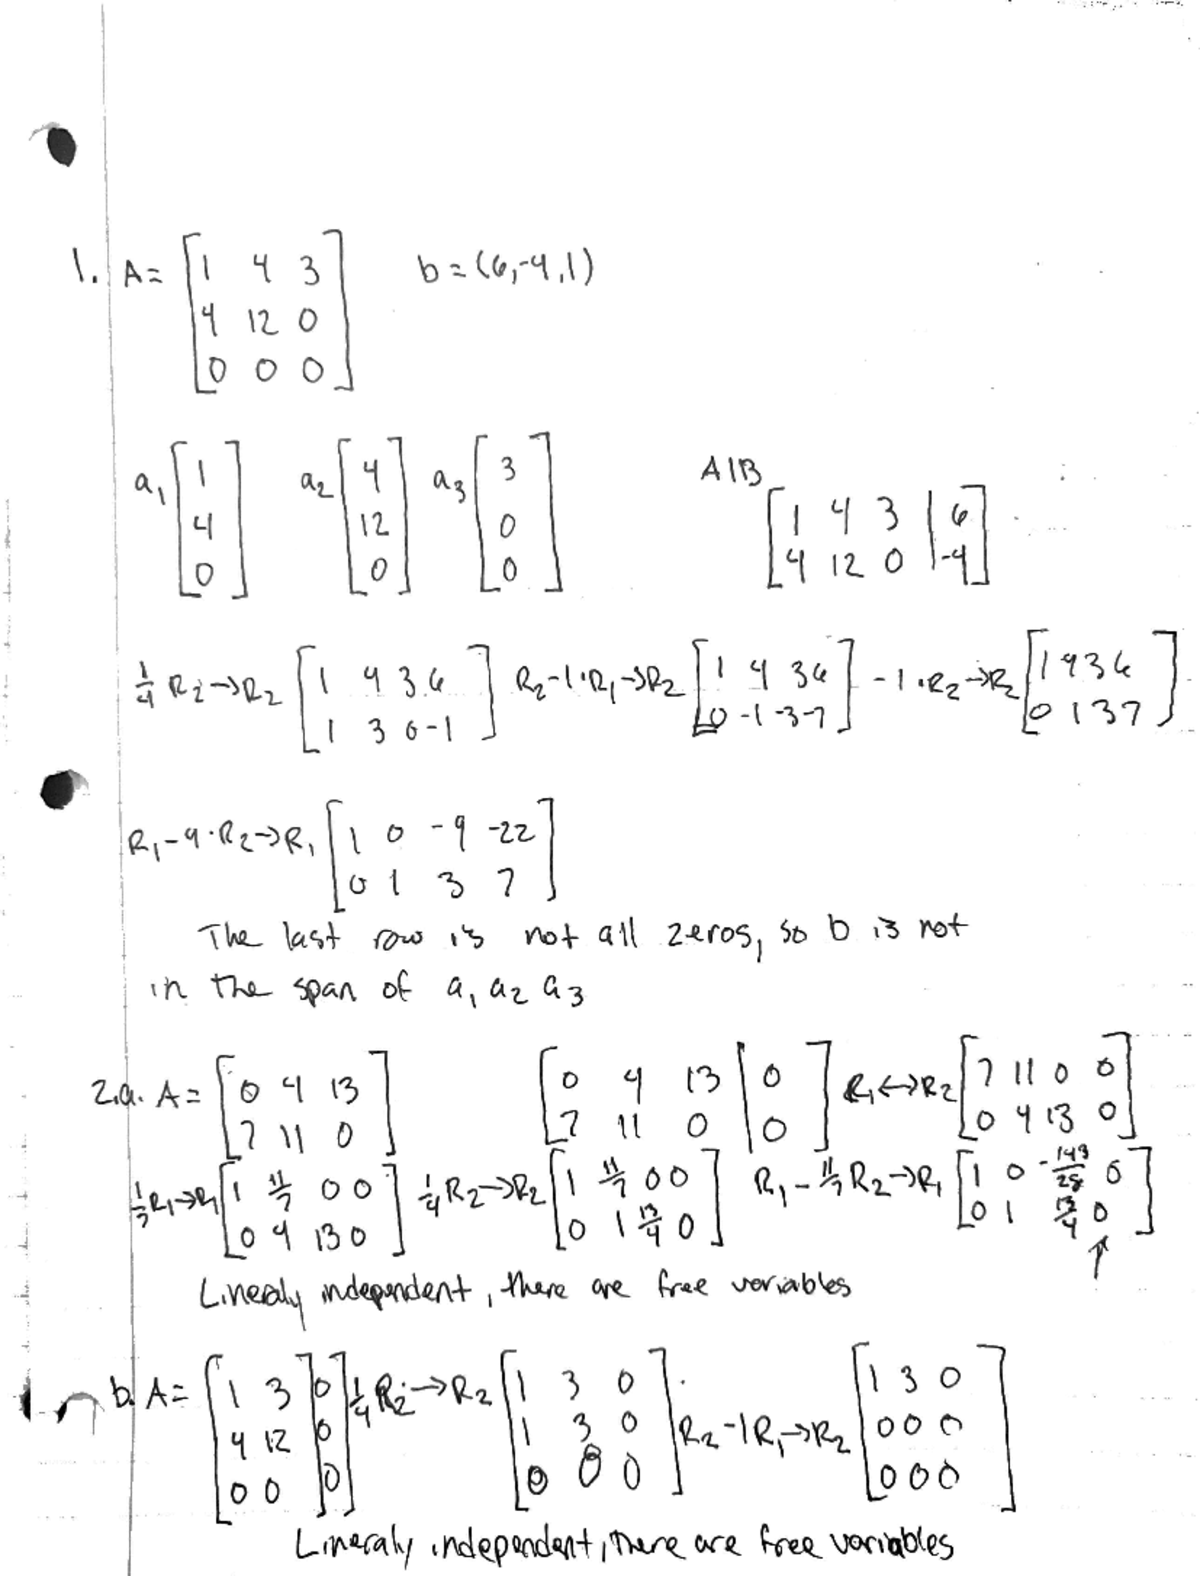 1. A = [1 4 3; 4 12 0; 0 0 0] b = (6,-4,1)
a1 [1; 4; 0] a2 [4; 12; 0] a3 [3; 0; 0] A|B [1 4 3 | 6; 4 12 0 | -4]
1/4 R2→R2 [1 4 3 6; 1 3 0 -1] R2-1·R1→R2 [1 4 3 6; 0 -1 -3 -7] -1·R2→R2 [1 4 3 6; 0 1 3 7]
R1-4·R2→R1 [1 0 -9 -22; 0 1 3 7]
The last row is not all zeros, so b is not
in the span of a1 a2 a3
2.a. A = [0 4 13; 7 11 0] [0 4 13 | 0; 7 11 0 | 0] R1↔R2 [7 11 0 0; 0 4 13 0]
1/7 R1→R1 [1 11/7 0 0; 0 4 13 0] 1/4 R2→R2 [1 11/7 0 0; 0 1 13/4 0] R1-11/7 R2→R1 [1 0 -143/28 0; 0 1 13/4 0]
↑
Lineraly independent, there are free variables
b. A = [1 3 | 0; 4 12 | 0; 0 0 | 0] 1/4 R2→R2 [1 3 0; 1 3 0; 0 0 0] R2-1R1→R2 [1 3 0; 0 0 0; 0 0 0]
Lineraly independent, there are free variables